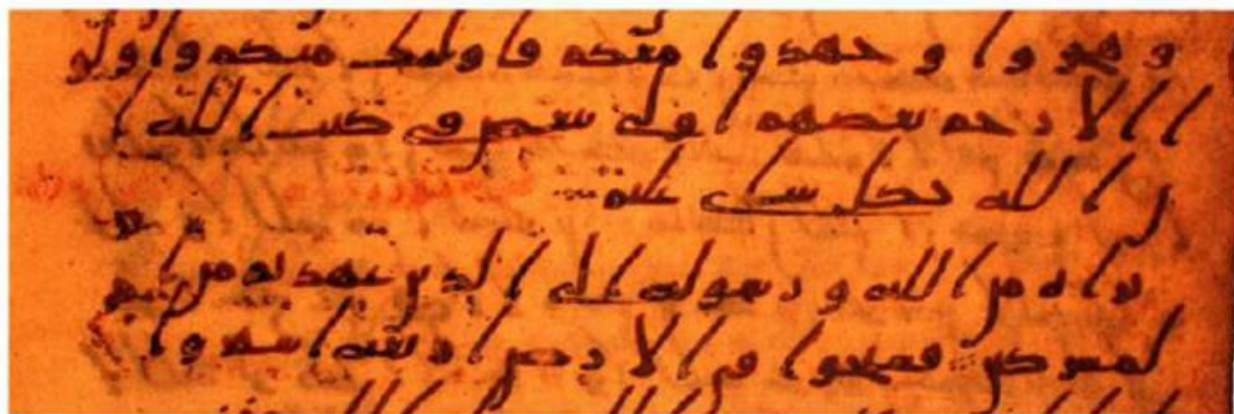 و هجروا و جهدوا معكم فا ولئك منكم وا ولو
ا الا رحم بعضهم ا ولى ببعض فى كتب ا لله ا
ن ا لله بكل شى عليم
براه من ا لله و رسوله ا لى ا لذين عهدتم من ا
لمشركين فسيحوا فى ا لا رض ا ربعه ا شهر وا